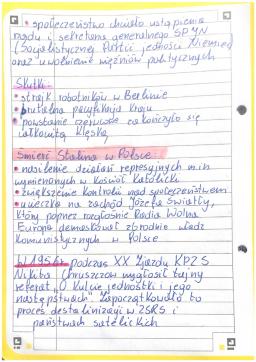 • społeczeństwo chciało ustąpienia
rządu i sekretarza generalnego SPJN
(Socjalistycznej Partii Jedności Niemiec)
oraz uwolnienie więźniów politycznych
Skutki:
• strajk robotników w Berlinie
• brutalna pacyfikacja kraju
• powstanie czerwcowe zakończyło się
całkowitą klęską
Śmierć Stalina w Polsce
• nasilenie działań represyjnych m.in
wymierzonych w Kościół Katolicki
• zwiększenie kontroli nad społeczeństwem
• ucieczka na zachód Józefa Światły,
który poprzez rozgłośnie Radia Wolna
Europa demaskował zbrodnie władz
komunistycznych w Polsce
W 1956r. podczas XX Zjazdu KPZS
Nikita Chruszczow wygłosił tajny
referat „O kulcie jednostki i jego
następstwach". Zapoczątkowało to
proces destalinizacji w ZSRS i
państwach satelickich